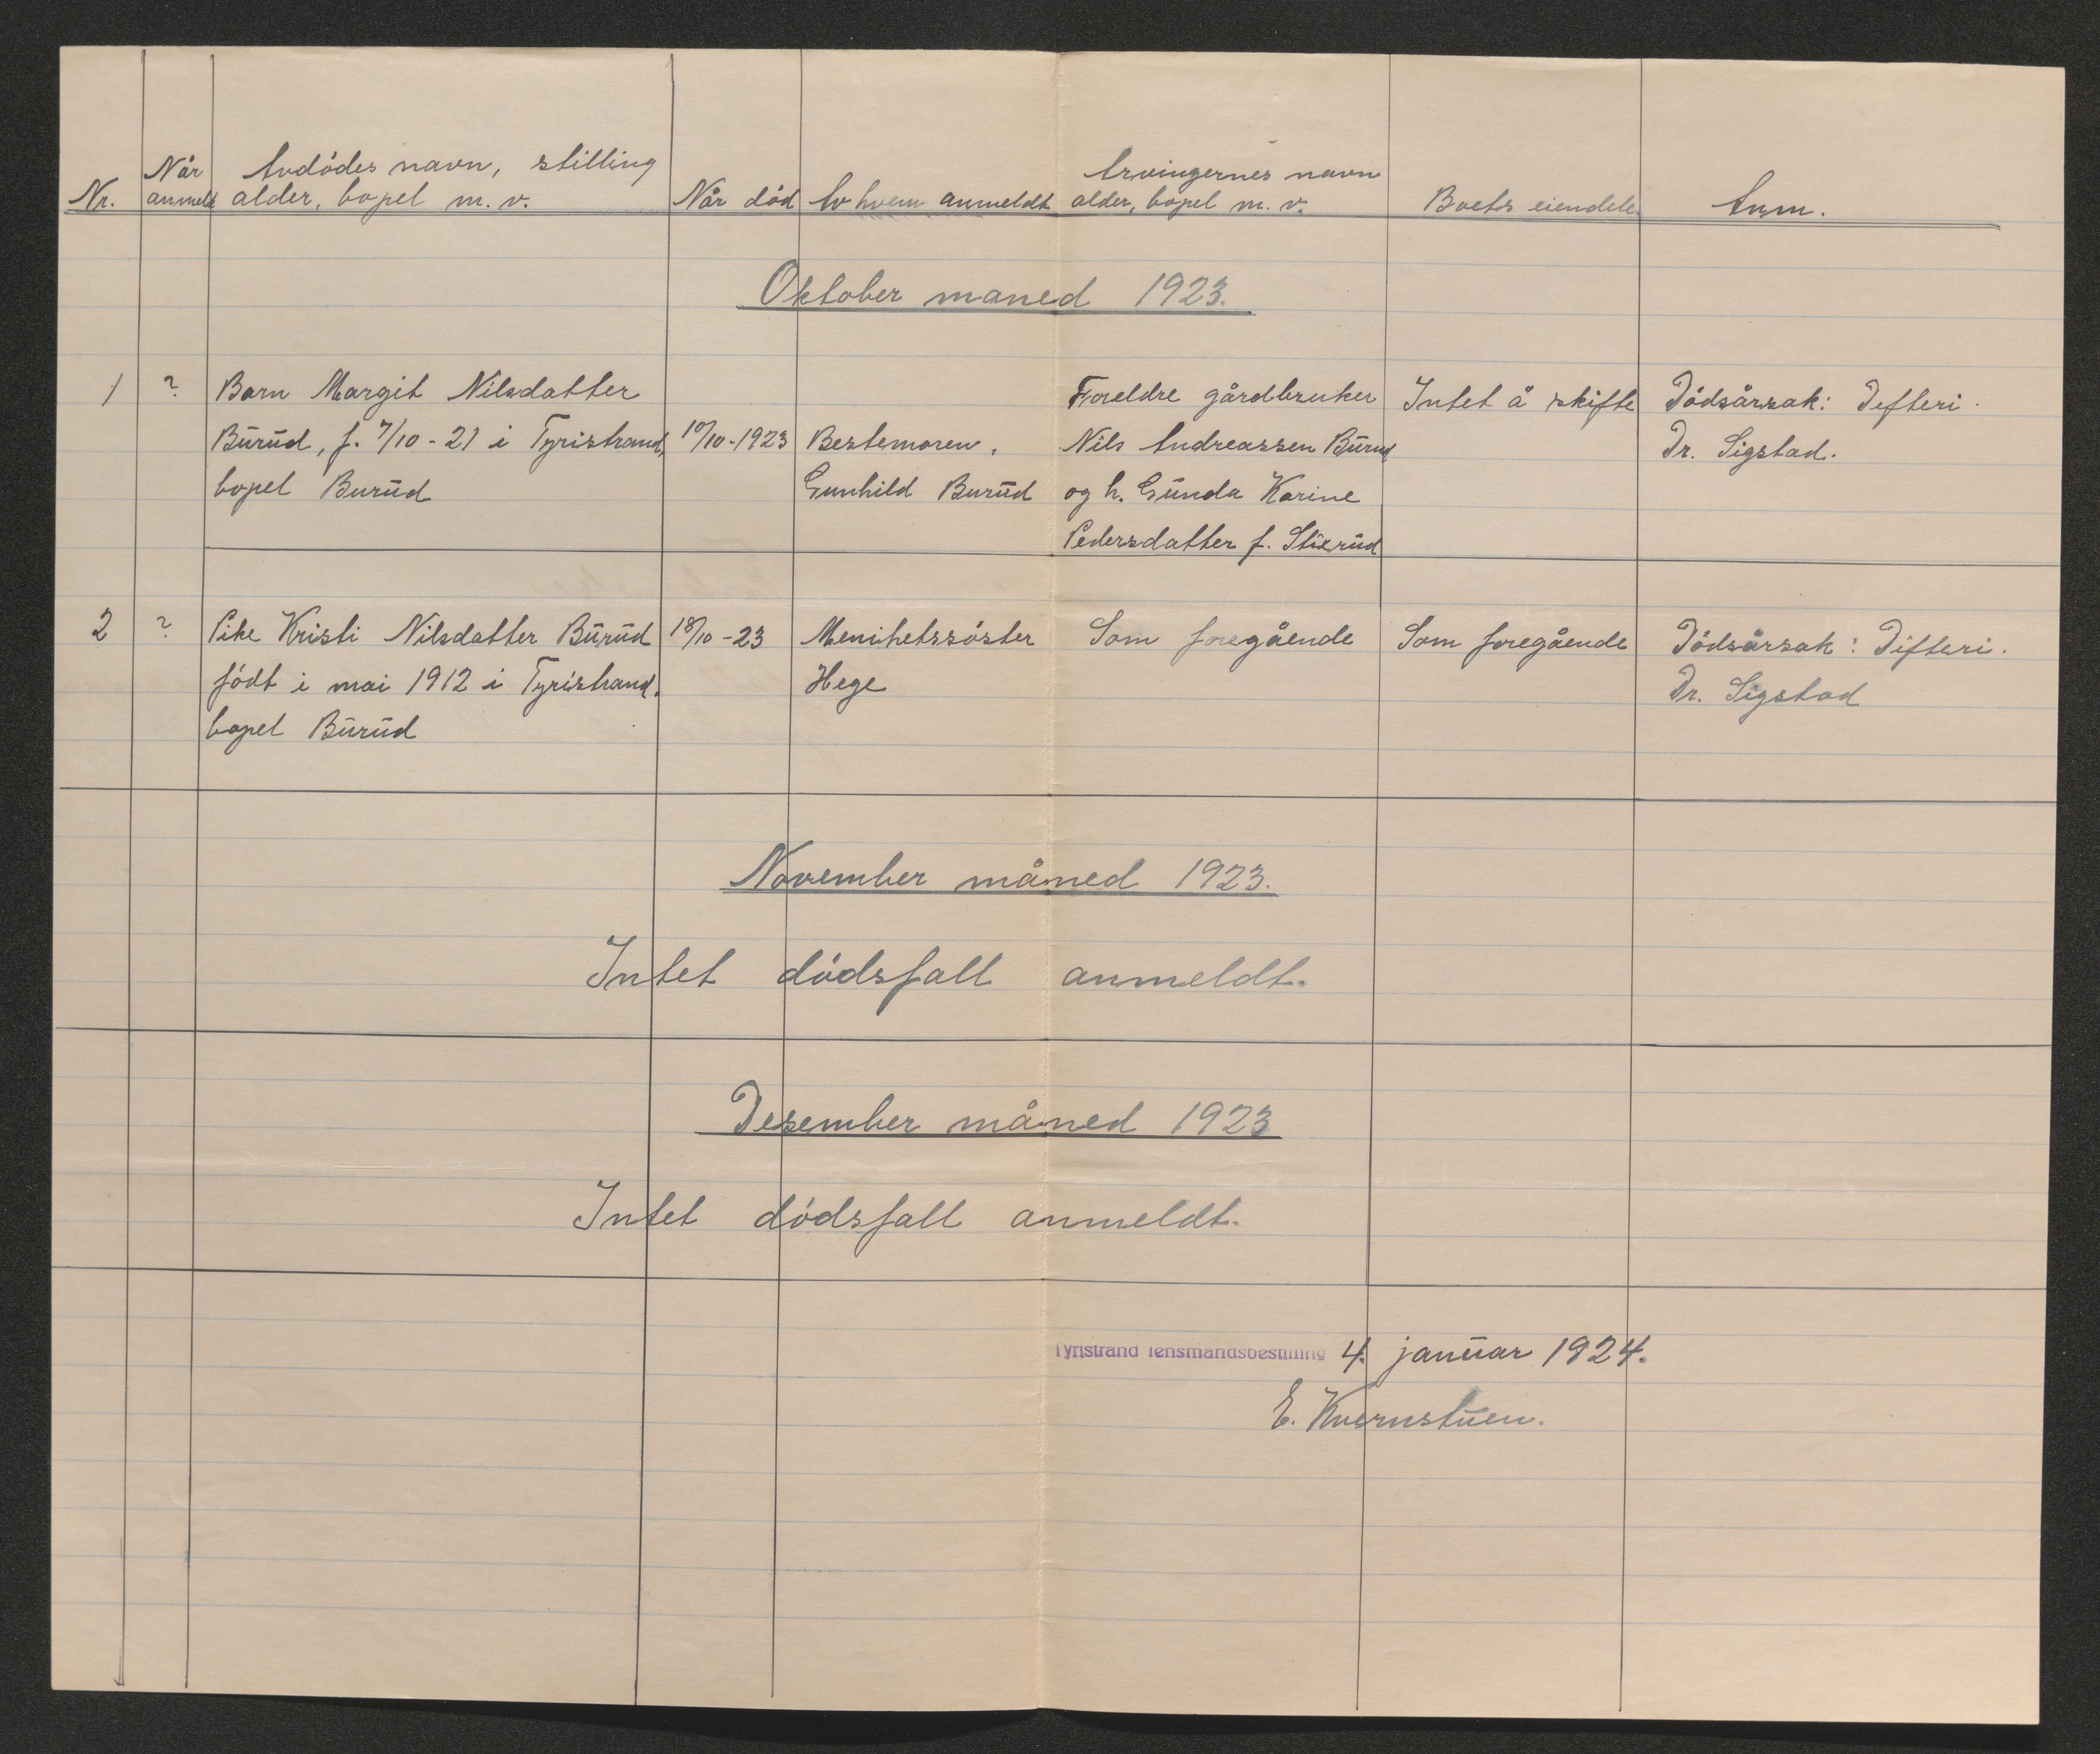 Nr.
Når anmeldt
Avdødes navn, stilling
alder, bopel m. v.
Når død
Av hvem anmeldt
Arvingernes navn
alder, bopel m. v.
Boets eiendele
Anm.
Oktober maned 1923.
1
?
Barn Margit Nilsdatter
Burud, f. 7/10 - 21 i Tyristrand,
bopel Burud
10/10-1923
Bestemoren,
Gunhild Burud
Foreldre gårdbruker
Nils Andreassen Burud
og h. Gunda Karine
Pedersdatter f. Stixrud
Intet å skifte
Dødsårsak: Defteri.
Dr. Sigstad.
2
?
Pike Kristi Nilsdatter Burud
født i mai 1912 i Tyristrand.
bopel Burud
18/10 - 23
Menihetssøster
Hege
Som foregående
Som foregående
Dødsårsak: Difteri.
Dr. Sigstad
November måned 1923.
Intet dødsfall anmeldt.
Desember måned 1923
Intet dødsfall anmeldt.
Tyristrand lensmandsbestilling 4. januar 1924.
E. Kvernstuen.